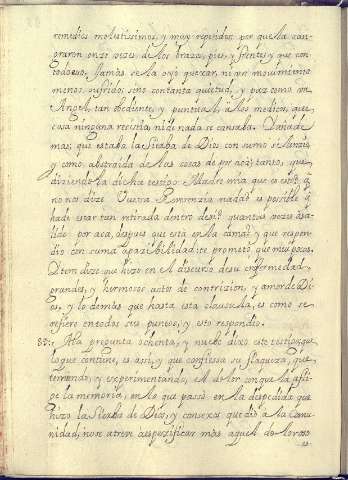 remedios molestissimos, y muy repetidos por que la san-
graron onze vezes, de los brazos, pies, y frente, y que con
todo eso, Jamas se la oyo quexar, ni un movimiento
menos sufrido, sino con tanta quietud, y paz como un
Angel, tan obediente, y puntual a los medicos, que
cosa ninguna resistia, ni de nada se cansaba. Y añade
mas, que estaba la Sierba de Dios con sumo silencio,
y como abstraida de las cosas de por acá, tanto, que
diziendo la dicha testigo: Madre mia que es esto?
no nos dize Vuestra Reverenzia nada? es posible q
ha de estar tan retirada dentro de si? quantas vezes a sa-
lido por acá, despues que está en la cama? y que respon-
dio con suma apazibilidad: te prometo, que muy pocas.
Y tem dize que hizo en el discurso de su enfermedad
grandes, y hermosos actos de contrizion, y amor de Di-
os. y lo demas que hasta esta clausula, es como se
refiere en todos sus puntos, y esto respondio.
89: A la pregunta ochenta, y nuebe dixo este testigo, que
lo que contiene, es asi, y que confiessa su flaqueza, que
temiendo, y experimentando, el dolor con que la afli-
xe la memoria, en lo que pasó en la despedida que
hizo la Sierba de Dios, y consexos que dió a la Comu-
nidad, no se atreve a espezificar mas aquel doloroso